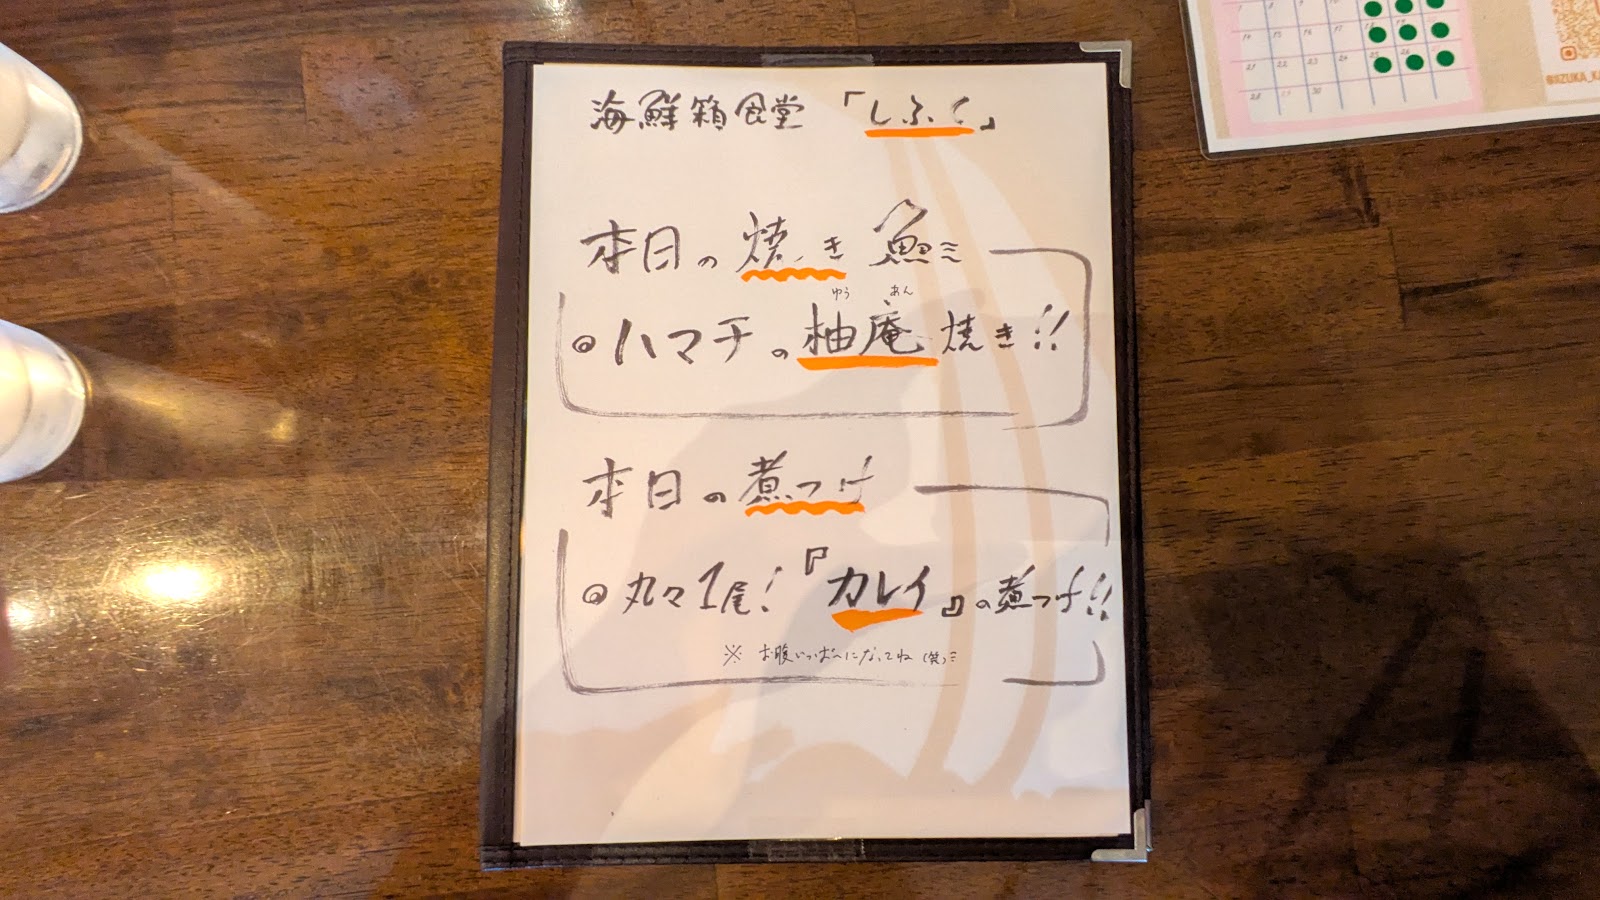 海鮮箱食堂 「しふく」
本日の焼き魚
ゆう あん
◎ハマチの柚庵焼き!!
本日の煮つけ
◎丸々1尾!『カレイ』の煮つけ!!
※ お腹いっぱいになってね (笑)